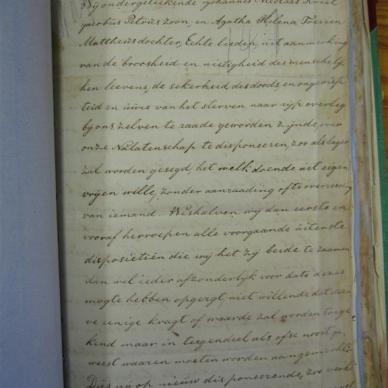 Wij ondergeteekende Johannes Nicolaas
Jacobus Petrus zoon, en Agatha Helena
Mattheus dochter, Echte lieden, uit aanmerking
van de broosheid en nietigheid des menschely
ken leevens, de sekerheid des doods en ongewis
heid en uure van het sterven naar ryp overleg
by ons zelven te raade geworden zynde, over
onze Nalatenschap te disponeeren, zoo als lager
zal worden gesegd, het welk doende uit eigen
vryen wille, zonder aanraading ofte
van iemand Weshalven wy dan eerst en
vooraf herroepen alle voorgaande uiterste
disposietien die wy het zy beide te zaamen
dan wel ieder afzonderlyk voor dato deezes
mogte hebben opgerigt niet willende dat dezel
ve eenige kragt of waarde zal worden toege
kend maar in teegendeel als ofse nooit ge
weest waaren moeten worden aangemerkt
op nieuw disponeerende, zoo